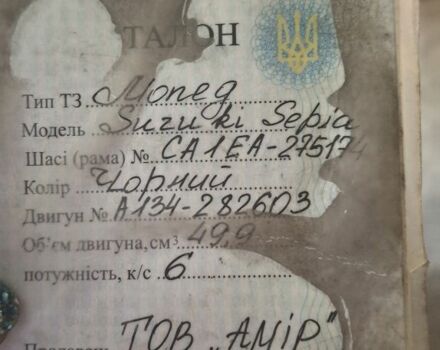 ТАЛОН
Тип ТЗ Мопед
Модель Suzuki Sepia
Шасі (рама) № CA1EA-275174
Колір Чорний
Двигун № A134-282603
Об'єм двигуна,см³ 49,9
потужність, к/с 6
ТОВ „АМІР"